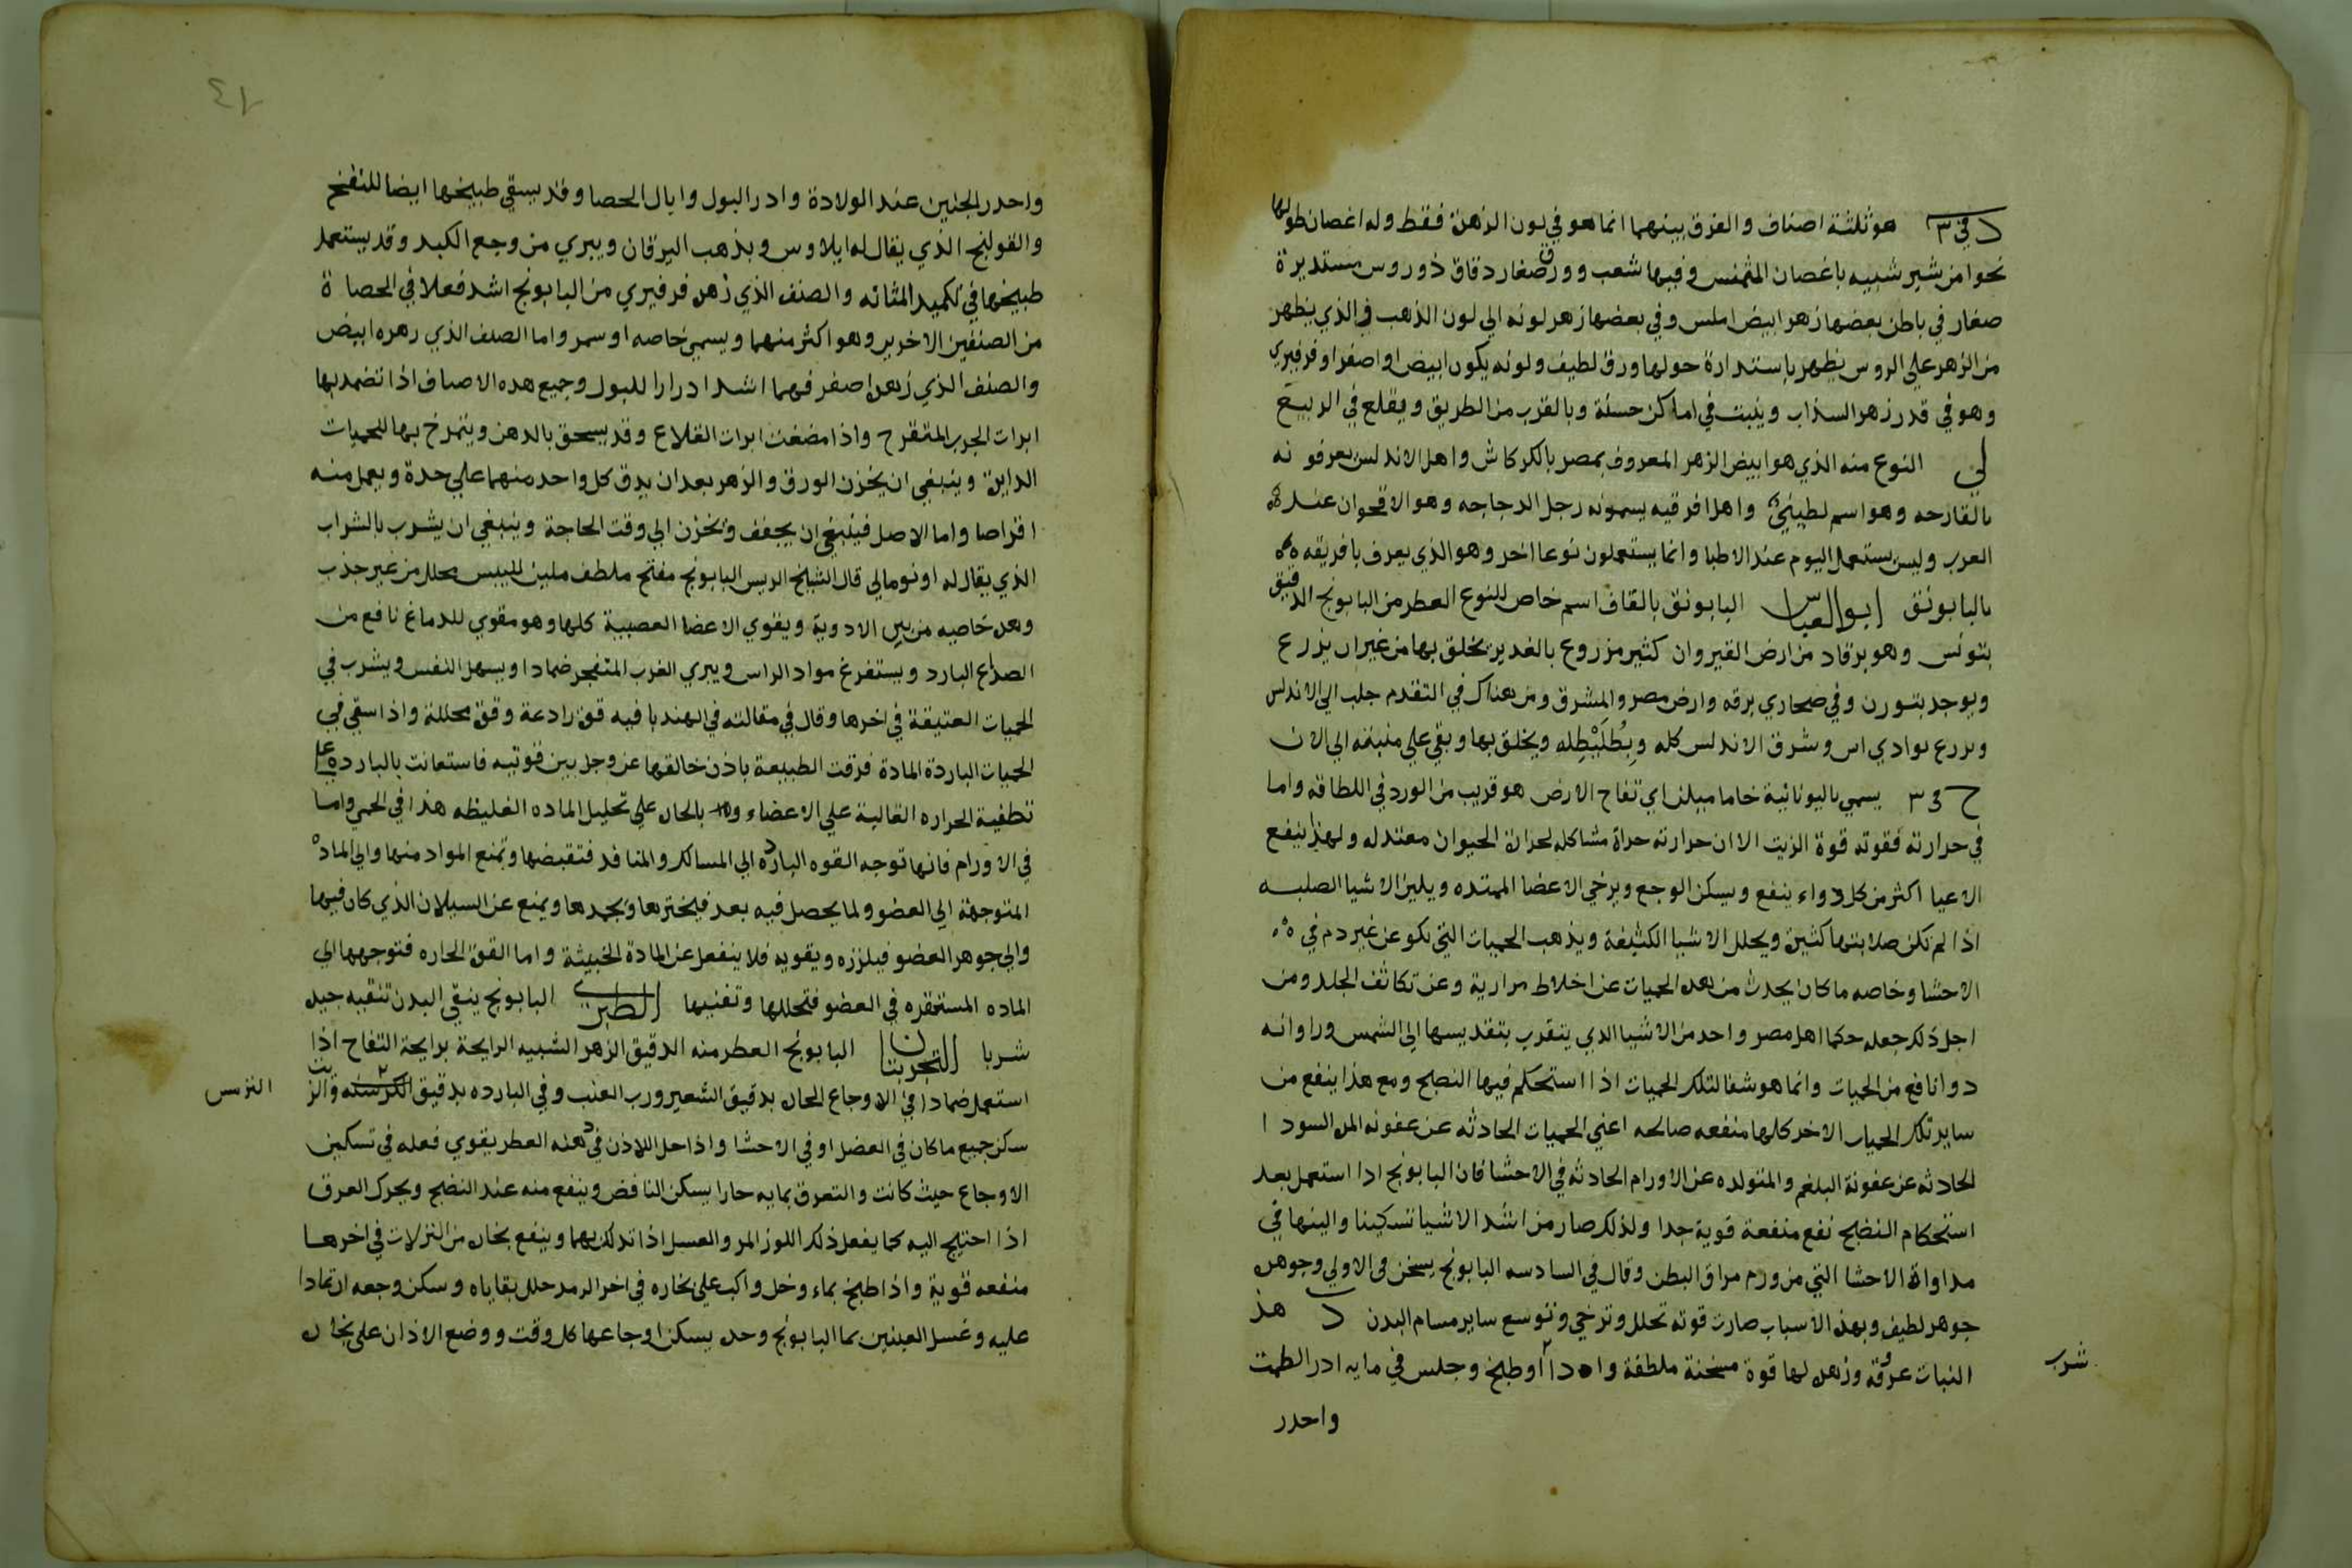 د في ٣ هو ثلثة اصناف والفرق بينهما انما هو في لون الزهرة فقط وله اغصان طولها
نحوا من شبر شبيه باغصان المثمنس وفيها شعب وورق صغار دقاق ذو روس مستديرة
صغار في باطن بعضها زهر ابيض املس وفي بعضها زهر لونه الي لون الذهب والذي يظهر
من الزهر علي الروس يظهر باستدارة حولها ورق لطيف ولونه يكون ابيض او اصفر او فرفيري
وهو في قدر زهر السذاب وينبت في اماكن خشنة وبالقرب من الطريق ويقلع في الربيع
لي النوع منه الذي هو ابيض الزهر المعروف بمصر بالكركاش واهل الاندلس يعرفونه
بالقارحه وهو اسم لطيني واهل افرقيه يسمونه رجل الدجاجه وهو الاقحوان عند
العرب وليس يستعمل اليوم عند الاطبا وانما يستعملون نوعا اخر وهو الذي يعرف بافريقه
بالبابونق ابو العباس البابونق بالقاف اسم خاص للنوع العطر من البابونج الدقيق
بتونس وهو برقاد من ارض القيروان كثير مزروع بالغدير تخلق بها من غير ان يزرع
ويوجد بتورن وفي صحاري برقه وارض مصر والمشرق ومن هناك في التقدم جلب الي الاندلس
وزرع بوادي اس وشرق الاندلس كله وبطليطله ويخلق بها وبقي علي منبته الي الان
ح في ٣ يسمي باليونانية خاماميلن اي تفاح الارض هو قريب من الورد في اللطافه واما
في حرارته فقوته قوة الزيت الا ان حرارته حراة مشاكله لحرارة الحيوان معتدله ولهذا ينفع
الاعيا اكثر من كل دواء ينفع ويسكن الوجع ويرخي الاعضا الممتده ويلين الاشيا الصلبه
اذا لم تكن صلابتها كثيرة ويحلل الاشيا الكثيفة ويذهب الحميات التي تكو عن غير دم في
الاحشا وخاصه ما كان يحدث من هذه الحميات عن اخلاط مرارية وعن تكاثف الجلد ومن
اجل ذلك جعله حكما اهل مصر واحد من الاشيا الذي يتقرب بتقديسها الي الشمس وراوانه
دوا نافع من الحميات وانما هو شفا لتلك الحميات اذا استحكم فيها النضج ومع هذا ينفع من
ساير تلك الحميات الاخر كلها منفعه صالحه اعني الحميات الحادثه عن عفونه المره السودا
الحادثه عن عفونة البلغم والمتولده عن الاورام الحادثه في الاحشا فان البابونج اذا استعمل بعد
استحكام النضج نفع منفعة قوية جدا ولذلك صار من اشد الاشيا تسكينا والينها في
مداواة الاحشا التي من ورم مراق البطن وقال في السادسه البابونج يسخن في الاولي وجوهره
جوهر لطيف وبهذه الاسباب صارت قوته تحلل وترخي وتوسع ساير مسام البدن د هذ
النبات عروقه وزهره لها قوة مسخنة ملطفة واذا او طبخ وجلس في مايه ادر الطمث
شرب
واحدر
٤٧
واحدر الجنين عند الولادة وادر البول وابال الحصا وقد يسقي طبيخها ايضا للنفخ
والقولنج الذي يقال له ايلاوس ويذهب اليرقان ويبري من وجع الكبد وقد يستعمل
طبيخها في تكميد المثانه والصنف الذي زهره فرفيري من البابونج اشد فعلا في الحصاة
من الصنفين الاخرين وهو اكثر منهما ويسمي خاصه اوسمر واما الصنف الذي زهره ابيض
والصنف الذي زهره اصفر فهما اشد ادرارا للبول وجميع هده الاصناف اذا تضمد بها
ابرات الجرب المتقرح واذا مضغت ابرات القلاع وقد يسحق بالدهن ويتمرخ بها للحميات
الدايرة وينبغي ان يخزن الورق والزهر بعد ان يدق كل واحد منهما علي حدة ويعمل منه
اقراصا واما الاصل فينبغي ان يجفف ويخزن الي وقت الحاجة وينبغي ان يشرب بالشراب
الذي يقال له اونومالي قال الشيخ الريس البابونج مفتح ملطف ملين لليبس محلل من غير جذب
وهذه خاصيه من بين الادوية ويقوي الاعضا العصبية كلها وهو مقوي للدماغ نافع من
الصداع البارد ويستفرغ مواد الراس ويبري الغرب المنفجر ضمادا ويسهل النفس ويشرب في
الحميات العتيقة في اخرها وقال في مقالته في الهندبا فيه قوة رادعة وقوة محللة واذا سقي في
الحميات الباردة المادة فرقت الطبيعة باذن خالقها عز وجل بين قوتيه فاستعانت بالبارده علي
تطفية الحراره الغالبة علي الاعضاء بالحارة علي تحليل الماده الغليظه هذا في الحمي واما
في الاورام فانها توجه القوه البارده الي المسالك والمنافد فتقبضها وتمنع المواد منها والي الماده
المتوجهة الي العضو ولما يحصل فيه بعد فيخثرها ويجمدها ويمنع عن السيلان الذي كان فيها
والي جوهر العضو فيلززه ويقويه فلا ينفعل عن المادة الخبيثة واما القوة الحاره فتوجهها الي
الماده المستقره في العضو فتحللها وتفنيها الطبري البابونج ينقي البدن تنقيه جيده
شربا التجربتان البابونج العطر منه الدقيق الزهر الشبيه الرايحة برايحة التفاح اذا
استعمل ضمادا في الاوجاع الحارة بدقيق الشعير ورب العنب وفي البارده بدقيق الكرسنه والزيت
الترمس
سكن جميع ما كان في العضل او في الاحشا واذا حل اللاذن في دهنه العطر يقوي فعله في تسكين
الاوجاع حيث كانت والتعرق بمايه حارا يسكن النافض وينفع منه عند النضج ويحرك العرق
اذا احتيج اليه كما يفعل ذلك اللوز المر والعسل اذا تدلك بهما وينفع بخاره من النزلات في اخرها
منفعه قوية واذا طبخ بماء وخل واكب علي بخاره في اخر الرمد حلل بقاياه وسكن وجعه ارتمادا
عليه وغسل العينين بما البابونج وحده يسكن اوجاعها كل وقت ووضع الاذان علي بخاره